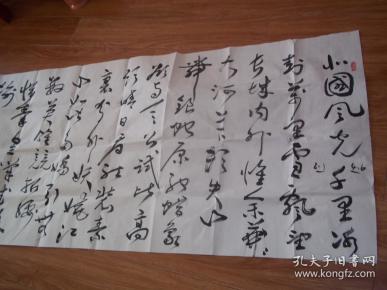 北國风光千里冰
封萬里雪飘望
长城内外惟余莽莽
大河上下顿失
舞银蛇原驰蜡象
欲与天公试比高
须晴日看红装素
裹分外妖娆江
山如此多娇引无
数英雄竞折腰
惜秦皇汉武
孔夫子旧书网
www.kongfz.com